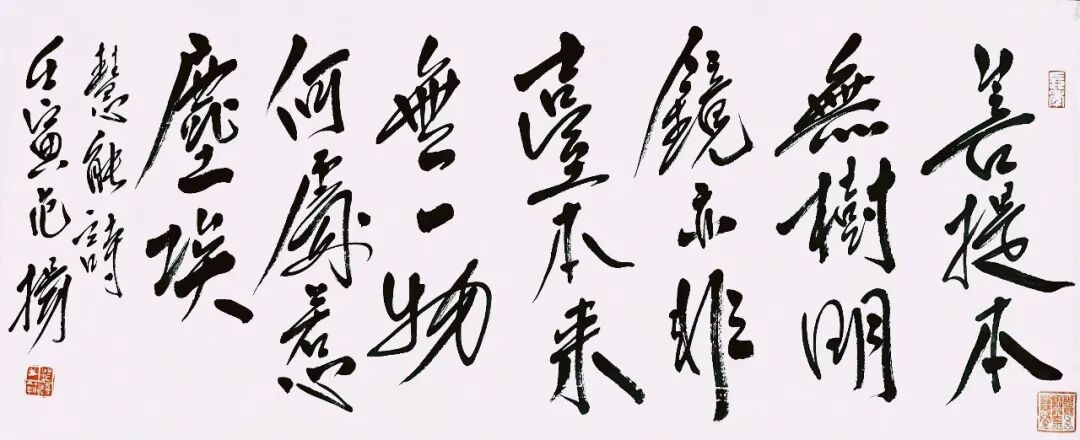 菩提本
無樹明
鏡亦非
臺本来
無一物
何處惹
塵埃
慧能詩
壬寅范揚